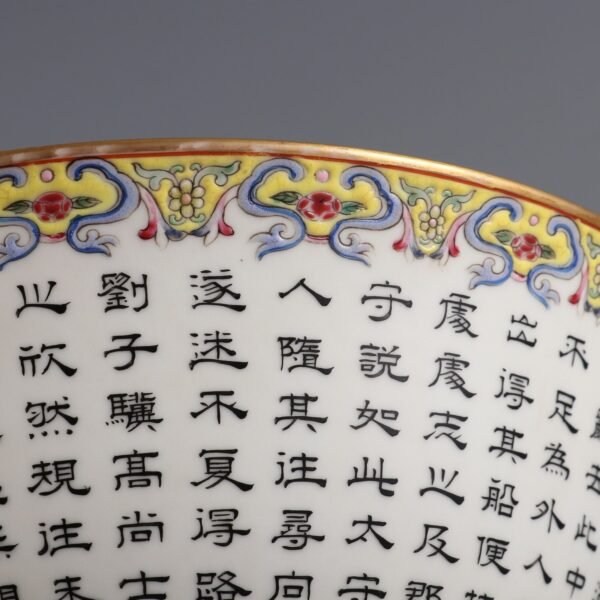 去此中
不足為外人
出得其船便
處處志之及郡
守説如此太守
人隨其往尋向
遂迷不复得路
劉子驥髙尚士
之欣然規往未